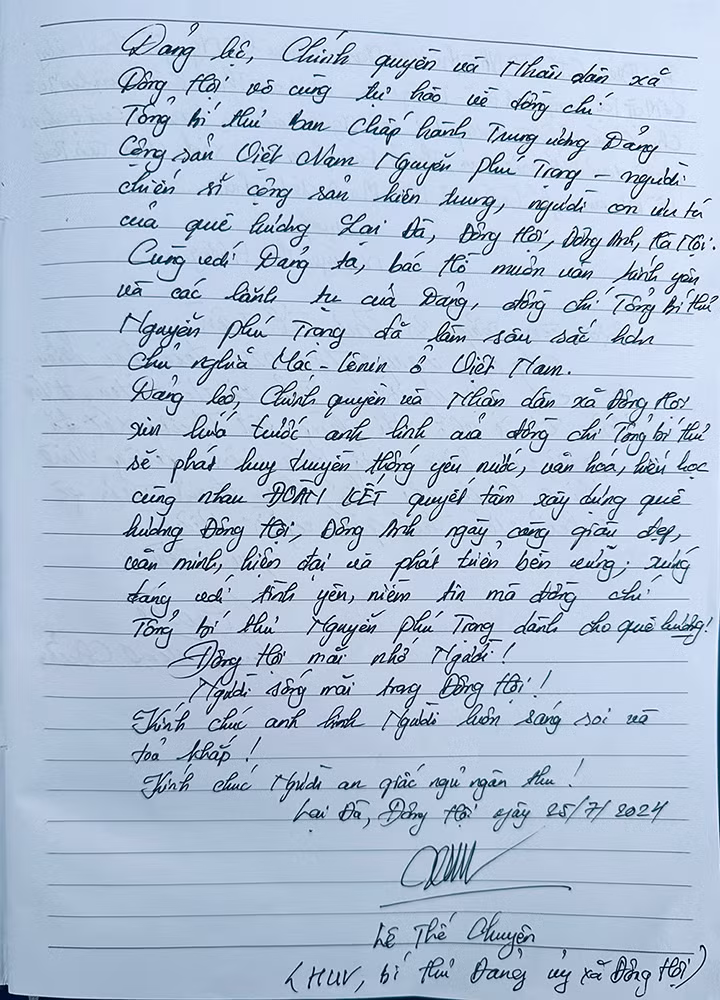 Đảng bộ, Chính quyền và Nhân dân xã
Đông Hội vô cùng tự hào về đồng chí
Tổng bí thư Ban Chấp hành Trung ương Đảng
Cộng sản Việt Nam Nguyễn Phú Trọng – người
chiến sĩ cộng sản kiên trung, người con ưu tú
của quê hương Lại Đà, Đông Hội, Đông Anh, Hà Nội.
Cùng với Đảng ta, bác Hồ muôn vàn kính yêu
và các lãnh tụ của Đảng, đồng chí Tổng Bí thư
Nguyễn Phú Trọng đã làm sâu sắc hơn
Chủ nghĩa Mác - Lênin ở Việt Nam.
Đảng bộ, Chính quyền và Nhân dân xã Đông Hội
xin hứa trước anh linh của đồng chí Tổng bí thư
sẽ phát huy truyền thống yêu nước, văn hóa, hiếu học
cùng nhau ĐOÀN KẾT quyết tâm xây dựng quê
hương Đông Hội, Đông Anh ngày càng giàu đẹp,
văn minh, hiện đại và phát triển bền vững; xứng
đáng với tình yêu, niềm tin mà đồng chí
Tổng bí thư Nguyễn Phú Trọng dành cho quê hương!
Đông Hội mãi nhớ Người!
Người sống mãi trong Đông Hội!
Kính chúc anh linh Người luôn sáng soi và
toả khắp!
Kính chúc Người an giấc ngủ ngàn thu!
Lại Đà, Đông Hội ngày 25/7/2024
Lê Thế Chuyện
(HUV, bí thư Đảng ủy xã Đông Hội)